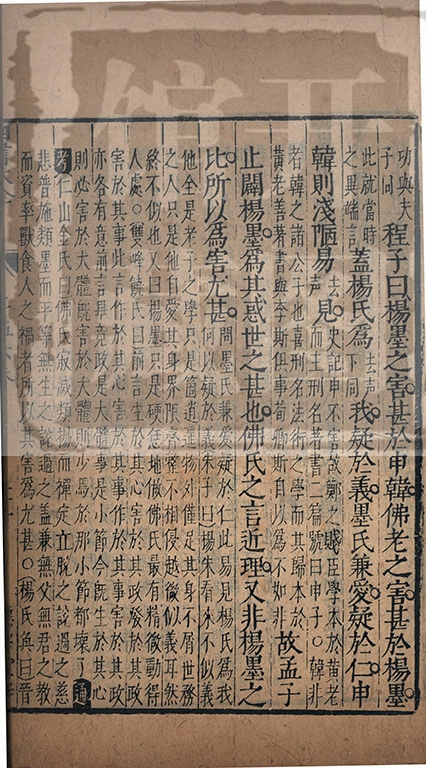 功與夫
子同
程子曰楊墨之害甚於申韓佛老之害甚於楊墨
此就當時
之異端言
蓋楊氏爲
去聲
下同
我疑於義墨氏兼愛疑於仁申
韓則淺陋易
去
聲
見
史記申不害故鄭之賤臣學本於黃老
而主刑名著書二篇號曰申子○韓非
者韓之諸公子也喜刑名法術之學而其歸本於
黃老善著書與李斯俱事荀卿斯自以爲不如非
故孟子
止闢楊墨爲其惑世之甚也佛氏之言近理又非楊墨之
比所以爲害尤甚
問墨氏兼愛疑於仁此易見楊氏爲我
何以疑於義朱子曰楊朱看來不似義
他全是老子之學只是簡逍遙物外僅足其身不屑世務
之人只是他自愛其身界限齊整不相侵越微似義耳然
終不似也又曰楊墨只是硬恁地做佛氏最有精微動得
人處○雙峰饒氏曰前言生於其心害於其政發於其政
害於其事此言作於其心害於其事作於其事害於其政
亦各有意前言畢竟政是大體事是小節今既生於其心
則必害於大體既害於大體則少焉於那小節都壞了○通
考仁山金氏曰佛氏寂滅類楊而禪定立脫之說過之慈
悲普施類墨而平等無生之說過之蓋兼無父無君之教
而資率獸食人之禍者所以其害爲尤甚○楊氏與曰晉